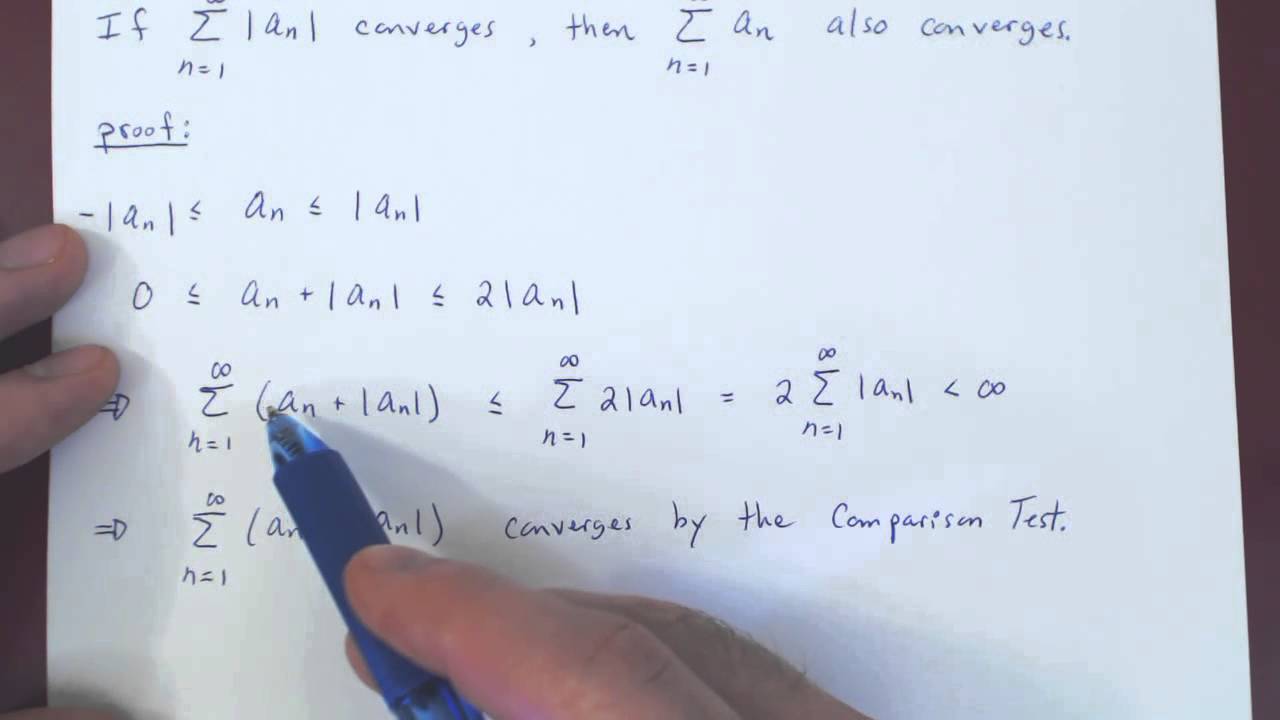 If ∑ |an| converges, then ∑ an also converges.
n=1 n=1
proof:
-|an| ≤ an ≤ |an|
0 ≤ an + |an| ≤ 2|an|
∞ ∞ ∞
⇒ ∑ (an + |an|) ≤ ∑ 2|an| = 2 ∑ |an| < ∞
n=1 n=1 n=1
∞
⇒ ∑ (an an|) converges by the Comparison Test.
n=1